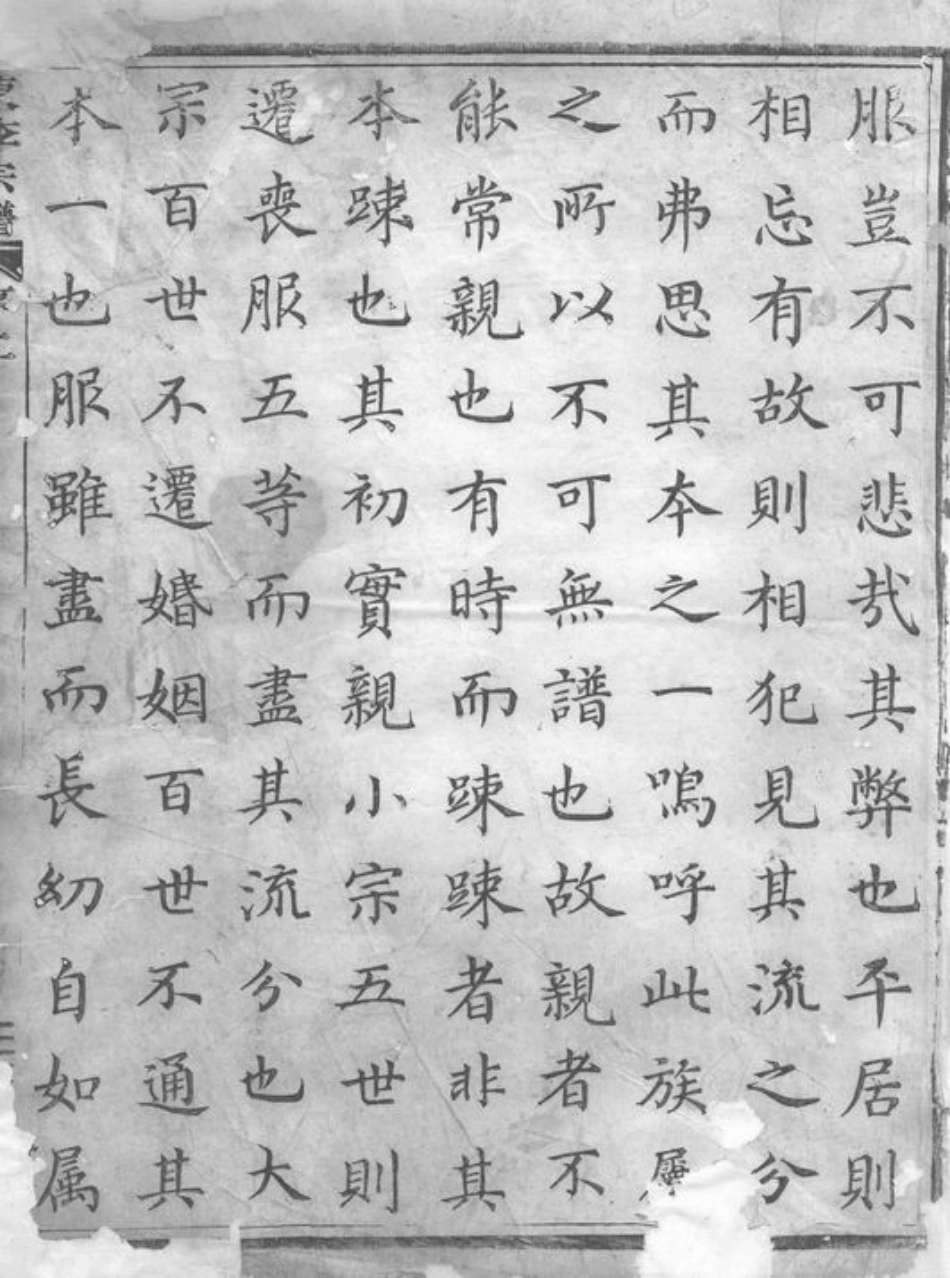 服豈不可悲㢤其弊也平居則
相忘有故則相犯見其流之分
而弗思其本之一嗚呼此族屬
之所以不可無譜也故親者不
能常親也有時而踈踈者非其
本踈也其初實親小宗五世則
遷喪服五等而盡其流分也大
宗百世不遷婚姻百世不通其
本一也服雖盡而長幼自如属
宗譜